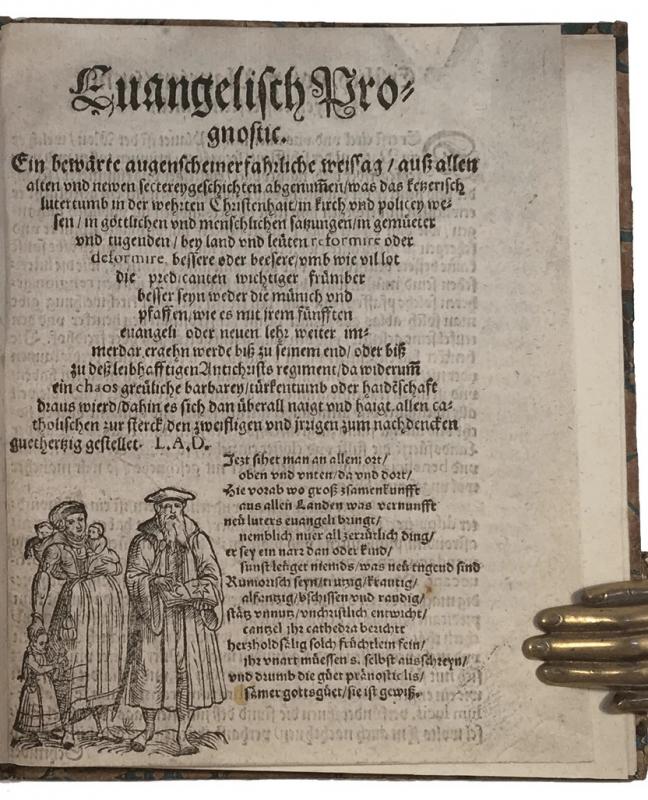 Euangelisch Pro-
gnostic.
Ein bewärte augenscheinerfahrliche weissag / auß allen
alten vnd newen sectereygeschichten abgenummen/was das ketzerisch
lutertumb in der wehrten Christenhait/in kirch vnd policey we-
sen / in göttlichen vnd menschlichen satzungen/in gemüeter
vnd tugenden / bey land vnd leüten reformire oder
deformire, bessere oder beesere/vmb wie vil lot
die predicanten wichtiger frümber
besser seyn weder die münich vnd
pfaffen/wie es mit jrem fünfften
euangeli oder neuen lehr weiter im-
merdar ergehn werde biß zu seinem end/ oder biß
zu deß leibhafftigen Antichrists regiment/da widerumm
ein chaos greüliche barbarey/türkentumb oder haidēschafft
draus wierd/dahin es sich dan überall naigt vnd haigt, allen ca-
tholischen zur sterck/den zweifligen vnd jrzigen zum nachdencken
guethertzig gestellet. L.A.D.
Jezt sihet man an allem ort/
oben vnd vnten/da vnd dort/
Hie vorab wo groß zsamenkunfft
aus allen Landen was vernunfft
neü luters euangeli bringt/
nemblich nuer all zerrürlich ding/
er sey ein narr dan oder kind/
sunst leüget niemds/was neü tugend sind
Rumorisch seyn/trutzig/krantig/
alfantzig/bschissen vnd randig/
stätz vnnutz/vnchristlich entwicht/
cantzel jhr cathedra bericht
herzholdsälig solch früchtlein fein/
jhr vnart müessen s. selbst ausschreyn/
vnd drumb die güet pränostic lis/
samer gottsgüet/sie ist gewiß.